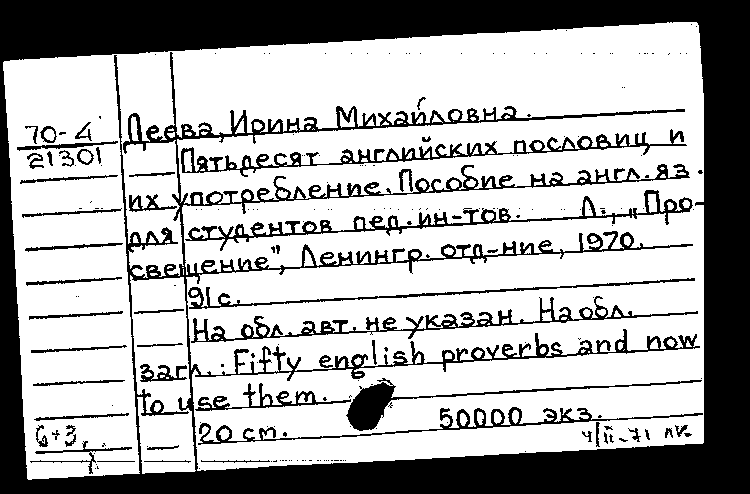 70-4 Деева, Ирина Михайловна.
21301 Пятьдесят английских пословиц и
их употребление. Пособие на англ. яз.
для студентов пед. ин-тов. Л., „Про-
свещение", Ленингр. отд-ние, 1970.
91 с.
На обл. авт. не указан. На обл.
загл.: Fifty english proverbs and now
to use them.
20 cm. 50000 экз.
6+3,
4/II-71